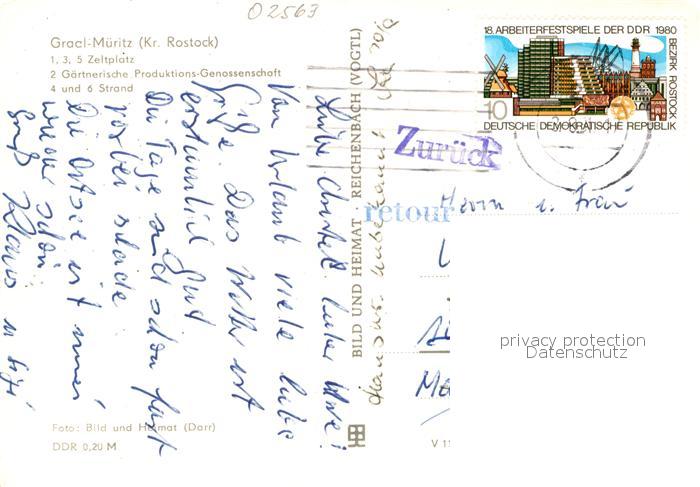 02563
Graal-Müritz (Kr. Rostock)
1, 3, 5 Zeltplatz
2 Gärtnerische Produktions-Genossenschaft
4 und 6 Strand
Liebe Christel! Lieber Uwe!
Vom Urlaub viele liebe
Grüße. Das Wetter ist
erstaunlich gut
Die Tage sind schon fast
vorbei schade.
Die Ostsee ist immer
wieder schön
Gruß Klaus u
Foto: Bild und Heimat (Darr)
DDR 0,20 M
BILD UND HEIMAT REICHENBACH (VOGTL)
unbekannt
V 11
18. ARBEITERFESTSPIELE DER DDR 1980
BEZIRK ROSTOCK
10
DEUTSCHE DEMOKRATISCHE REPUBLIK
Zurück
retour
Herrn u. Frau
privacy protection
Datenschutz